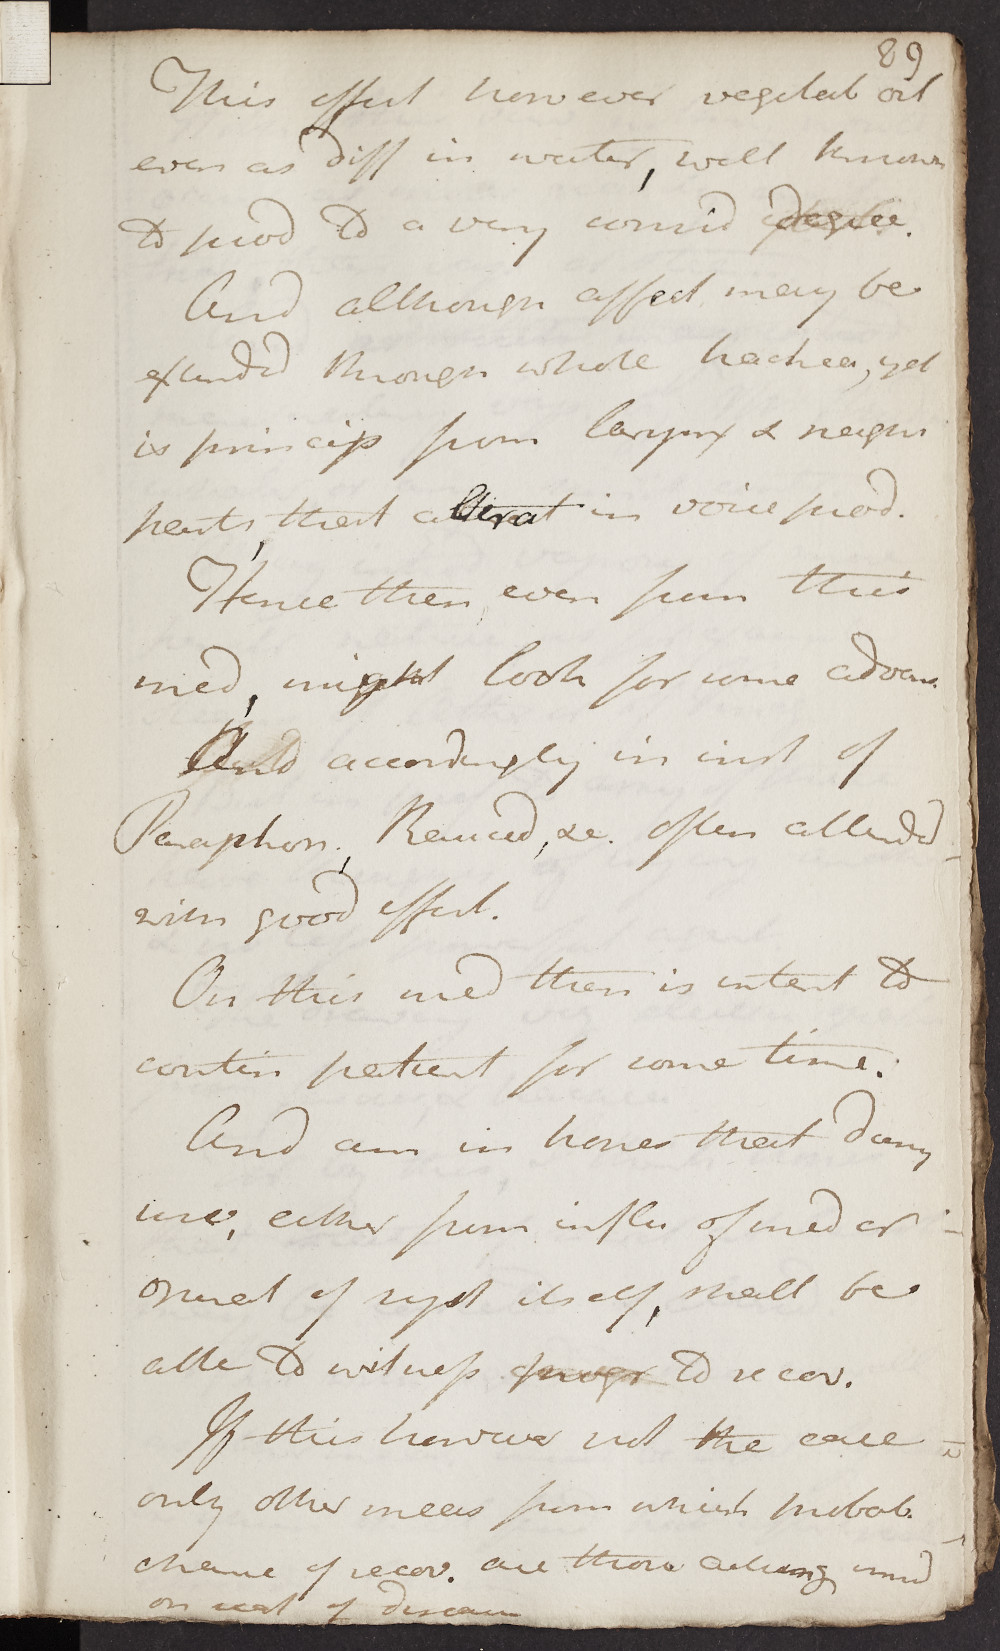 89
This effect however vegetab oil
even as diff in water, well known
to prod to a very consid degree.
And although effect may be
extended through whole trachea, yet
is princip from larynx & neighr
parts, that alterat in voice prod.
Hence then even from this
med, might look for some advan.
And accordingly in inst of
Paraphon., Rauced, &c. often attended
with good effect.
On this med then is intent to
contin patient for some time.
And am in hopes that during
use, either from influ of med or
operat of syst itself, shall be
able to witness progr to recov.
If this however not the case
only other meas from which probab.
chance of recov. are those acting immed
on seat of disease